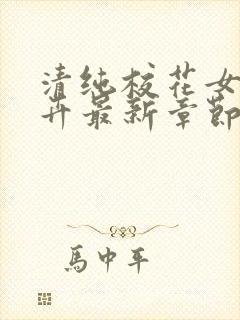 清纯校花女
卉最新章節
馬中年